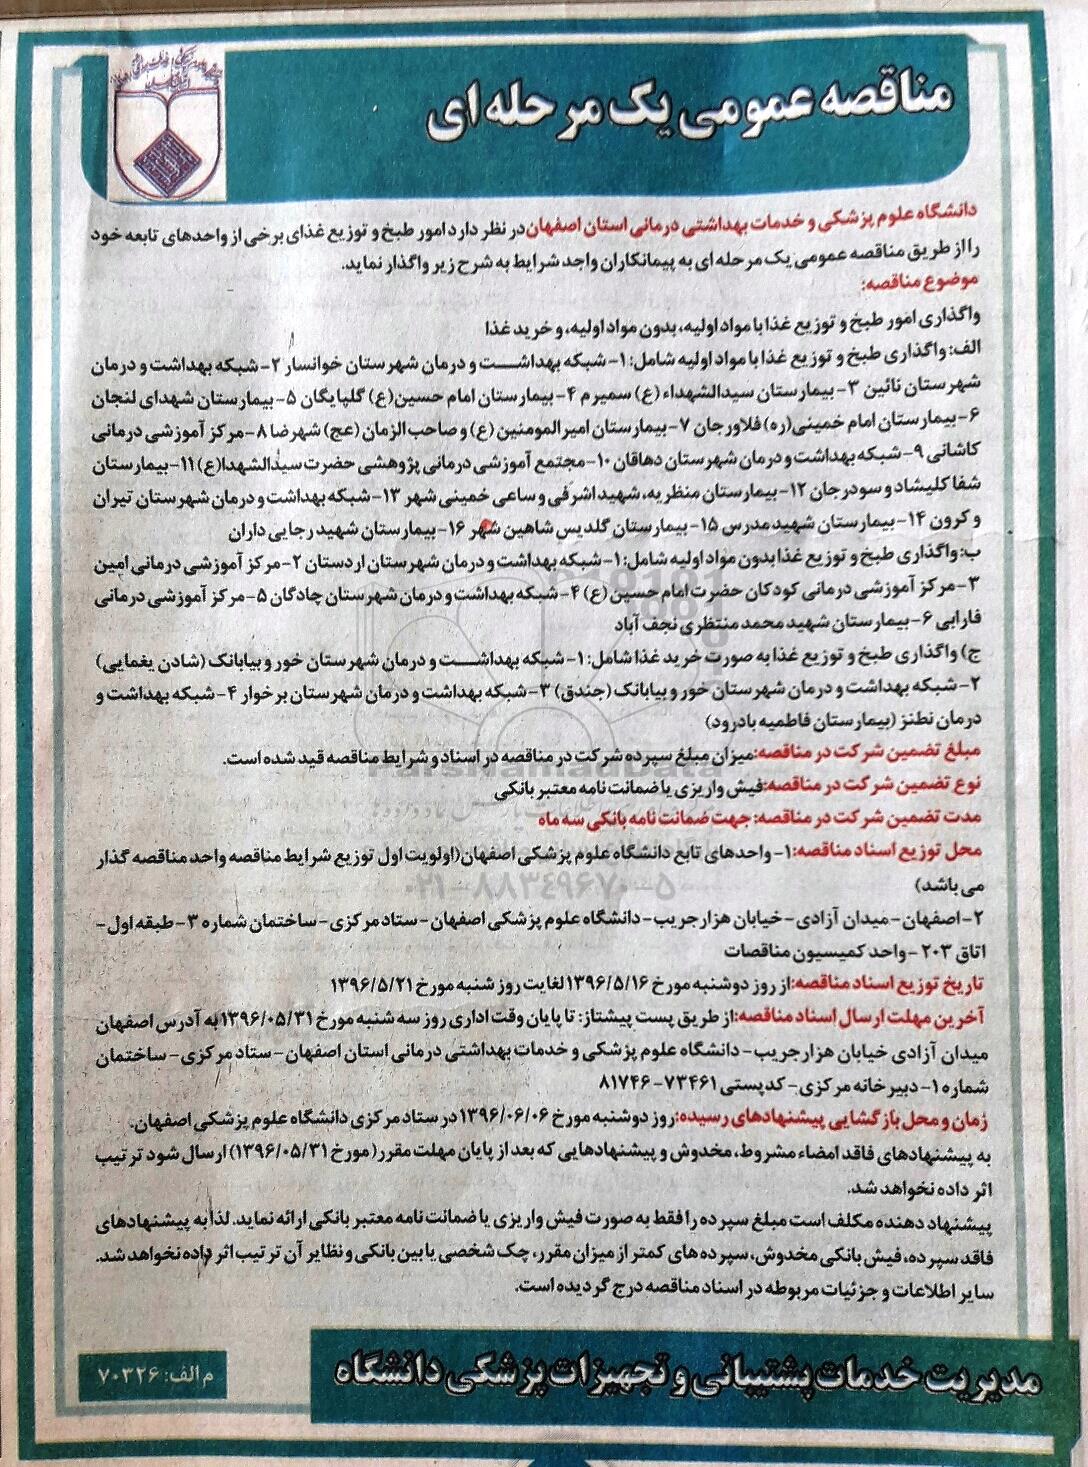 مناقصه عمومی یک مرحله ای
دانشگاه علوم پزشکی و خدمات بهداشتی درمانی استان اصفهان در نظر دارد امور طبخ و توزیع غذای برخی از واحدهای تابعه خود
را از طریق مناقصه عمومی یک مرحله ای به پیمانکاران واجد شرایط به شرح زیر واگذار نماید.
موضوع مناقصه:
واگذاری امور طبخ و توزیع غذا با مواد اولیه، بدون مواد اولیه، و خرید غذا
الف: واگذاری طبخ و توزیع غذا با مواد اولیه شامل: ۱- شبکه بهداشت و درمان شهرستان خوانسار ۲- شبکه بهداشت و درمان
شهرستان نائین ۳- بیمارستان سیدالشهداء (ع) سمیرم ۴- بیمارستان امام حسین(ع) گلپایگان ۵- بیمارستان شهدای لنجان
۶- بیمارستان امام خمینی(ره) فلاورجان ۷- بیمارستان امیرالمومنین (ع) و صاحب الزمان (عج) شهرضا ۸- مرکز آموزشی درمانی
کاشانی ۹- شبکه بهداشت و درمان شهرستان دهاقان ۱۰- مجتمع آموزشی درمانی پژوهشی حضرت سیدالشهدا(ع) ۱۱- بیمارستان
شفا کلیشاد و سودرجان ۱۲- بیمارستان منظریه، شهید اشرفی و ساعی خمینی شهر ۱۳- شبکه بهداشت و درمان شهرستان تیران
و کرون ۱۴- بیمارستان شهید مدرس ۱۵- بیمارستان گلدیس شاهین شهر ۱۶- بیمارستان شهید رجایی داران
ب: واگذاری طبخ و توزیع غذا بدون مواد اولیه شامل: ۱- شبکه بهداشت و درمان شهرستان اردستان ۲- مرکز آموزشی درمانی امین
۳- مرکز آموزشی درمانی کودکان حضرت امام حسین (ع) ۴- شبکه بهداشت و درمان شهرستان چادگان ۵- مرکز آموزشی درمانی
فارابی ۶- بیمارستان شهید محمد منتظری نجف آباد
ج) واگذاری طبخ و توزیع غذا به صورت خرید غذا شامل: ۱- شبکه بهداشت و درمان شهرستان خور و بیابانک (شادن یغمایی)
۲- شبکه بهداشت و درمان شهرستان خور و بیابانک (جندق) ۳- شبکه بهداشت و درمان شهرستان برخوار ۴- شبکه بهداشت و
درمان نطنز (بیمارستان فاطمیه بادرود)
مبلغ تضمین شرکت در مناقصه: میزان مبلغ سپرده شرکت در مناقصه در اسناد و شرایط مناقصه قید شده است.
ParsNamadData
نوع تضمین شرکت در مناقصه: فیش واریزی یا ضمانت نامه معتبر بانکی
مدت تضمین شرکت در مناقصه: جهت ضمانت نامه بانکی سه ماه
محل توزیع اسناد مناقصه: ۱- واحدهای تابع دانشگاه علوم پزشکی اصفهان(اولویت اول توزیع شرایط مناقصه واحد مناقصه گذار
می باشد)
۰۲۱-۸۸۳۴۹۶۷۰-۵
۲- اصفهان- میدان آزادی- خیابان هزار جریب- دانشگاه علوم پزشکی اصفهان- ستاد مرکزی- ساختمان شماره ۳- طبقه اول-
اتاق ۲۰۳ -واحد کمیسیون مناقصات
تاریخ توزیع اسناد مناقصه: از روز دوشنبه مورخ ۱۳۹۶/۵/۱۶ لغایت روز شنبه مورخ ۱۳۹۶/۵/۲۱
آخرین مهلت ارسال اسناد مناقصه: از طریق پست پیشتاز: تا پایان وقت اداری روز سه شنبه مورخ ۱۳۹۶/۰۵/۳۱ به آدرس اصفهان
میدان آزادی خیابان هزار جریب- دانشگاه علوم پزشکی و خدمات بهداشتی درمانی استان اصفهان- ستاد مرکزی- ساختمان
شماره ۱- دبیرخانه مرکزی- کدپستی ۷۳۴۶۱- ۸۱۷۴۶
زمان و محل بازگشایی پیشنهادهای رسیده: روز دوشنبه مورخ ۱۳۹۶/۰۶/۰۶ در ستاد مرکزی دانشگاه علوم پزشکی اصفهان.
به پیشنهادهای فاقد امضاء مشروط، مخدوش و پیشنهادهایی که بعد از پایان مهلت مقرر( مورخ ۱۳۹۶/۰۵/۳۱) ارسال شود ترتیب
اثر داده نخواهد شد.
پیشنهاد دهنده مکلف است مبلغ سپرده را فقط به صورت فیش واریزی یا ضمانت نامه معتبر بانکی ارائه نماید. لذا به پیشنهادهای
فاقد سپرده، فیش بانکی مخدوش، سپرده های کمتر از میزان مقرر، چک شخصی یا بین بانکی و نظایر آن ترتیب اثر داده نخواهد شد.
سایر اطلاعات و جزئیات مربوطه در اسناد مناقصه درج گردیده است.
مدیریت خدمات پشتیبانی و تجهیزات پزشکی دانشگاه
م الف: ۷۰۳۲۶